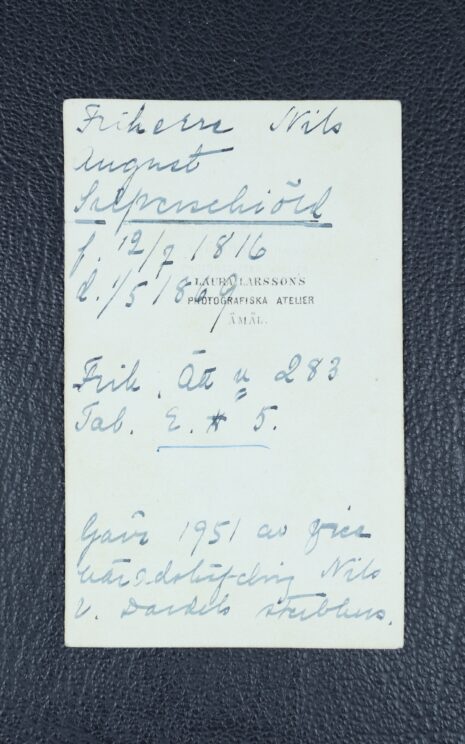 Friherre Nils
August
Silfverschiöld
f. 12/7 1816
d. 1/5 1869
LAURA LARSSONS
PHOTOGRAFISKA ATELIER
ÅMÅL.
Frih. Ätt n 283
Tab. 5.
Gåva 1951 av vice
häradshöfding Nils
v. Dardels sterbhus.